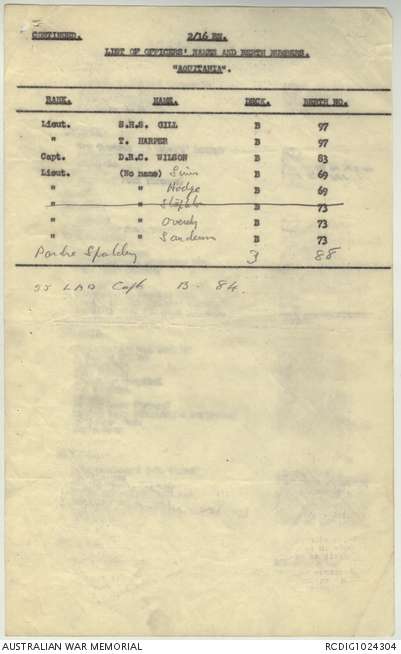 CONTINUED. 2/16 BN.
LIST OF OFFICERS' NAMES AND BERTH NUMBERS.
"AQUITANIA".
RANK. NAME. DECK. BERTH NO.
Lieut. S.H.S. GILL B 97
" T. HARPER B 97
Capt. D.R.C. WILSON B 83
Lieut. (No name) Sims B 69
" " Hodge B 69
" " B 73
" " Overdy B 73
" " Sanderson B 73
Padre Spalding 3 88
LAD Capt B - 84.
AUSTRALIAN WAR MEMORIAL RCDIG1024304